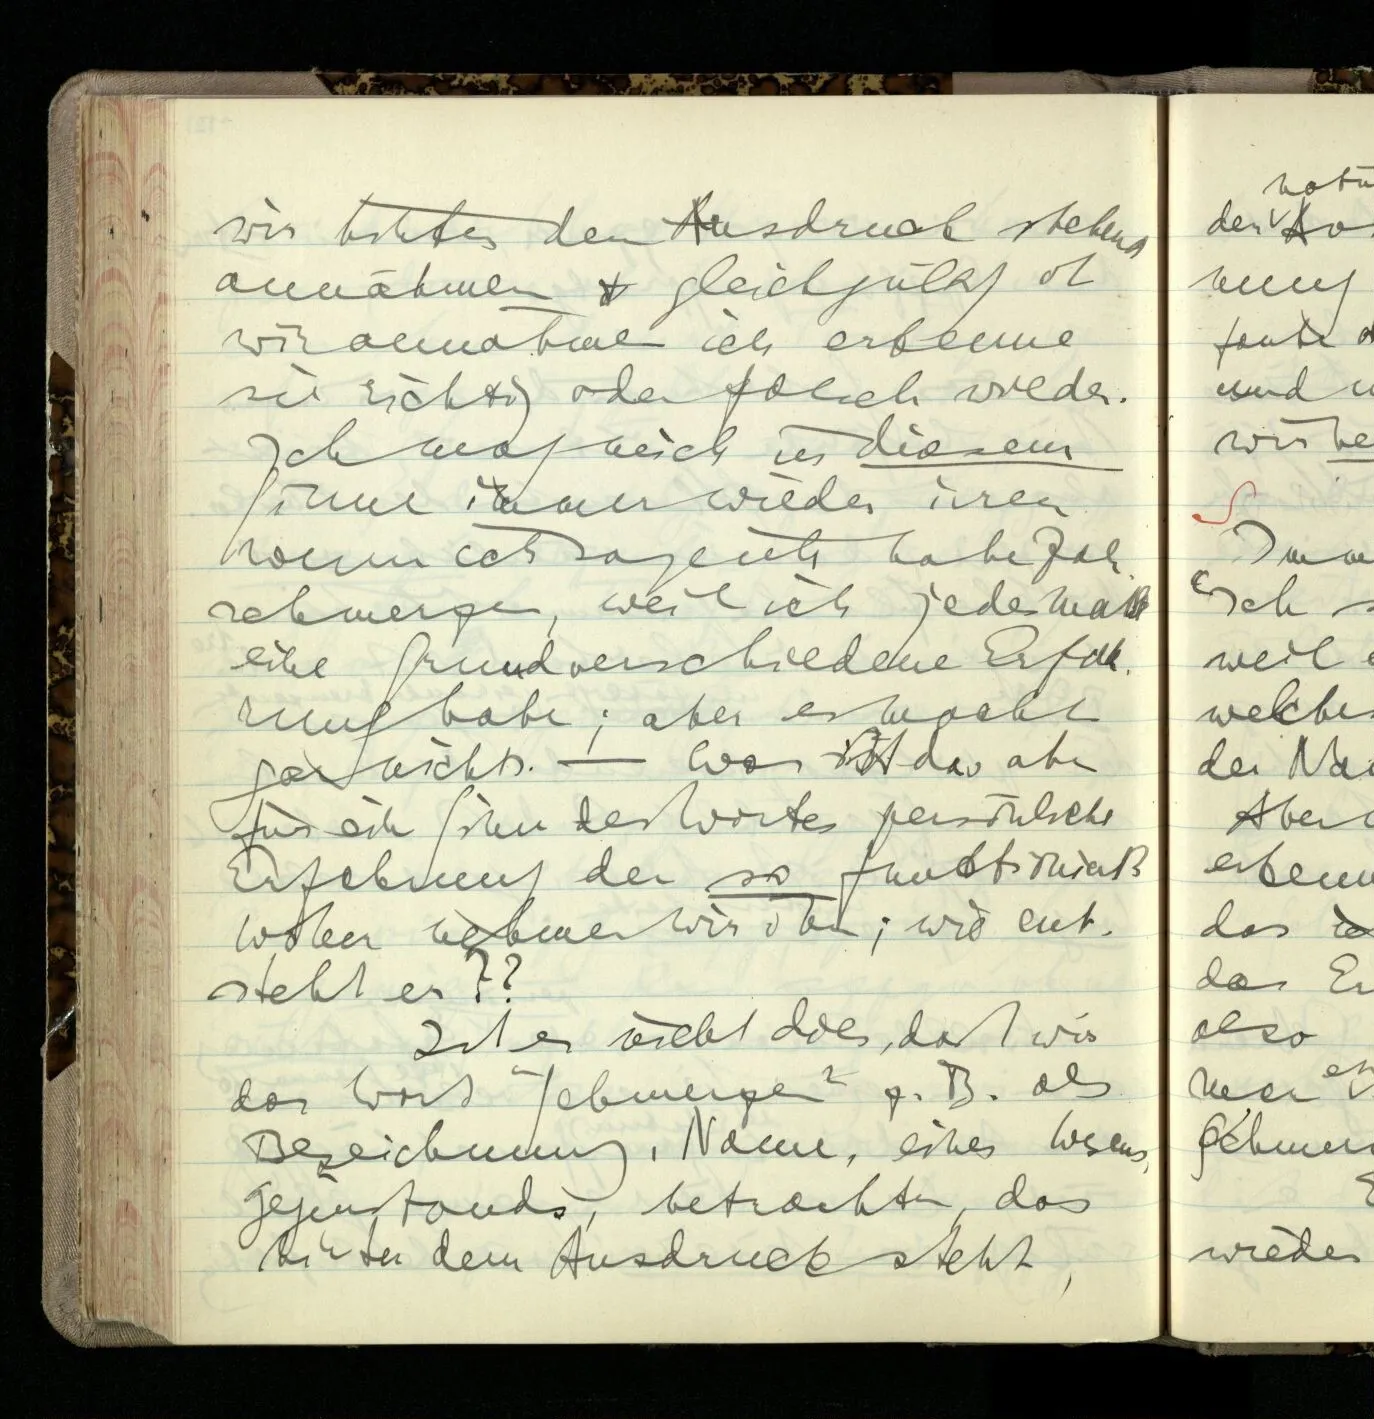 wir hinter dem Ausdruck stehend
annähmen & gleichgültig ob
wir annähmen ich erkenne
sie richtig oder falsch wieder.
Ich mag mich in diesem
Sinne immer wieder irren
wenn ich sage ich habe Zahn
schmerzen, weil ich jedesmal
eine grundverschiedene Erfah-
rung habe; aber es macht
gar nichts. — Was ist das aber
für ein Sinn des Wortes persönliche
Erfahrung der so funktioniert
woher nehmen wir ihn; wie ent-
steht er??
Ist es nicht dies, daß wir
das Wort "Schmerzen" z.B. als
Bezeichnung, Name, eines Wesens,
Gegenstands, betrachten, das
hinter dem Ausdruck steht,
natü
der
nung
und
wir be
Imm
Ich s
weil e
welches
der Na
Aber
erkenn
das
das Er
also
wieder